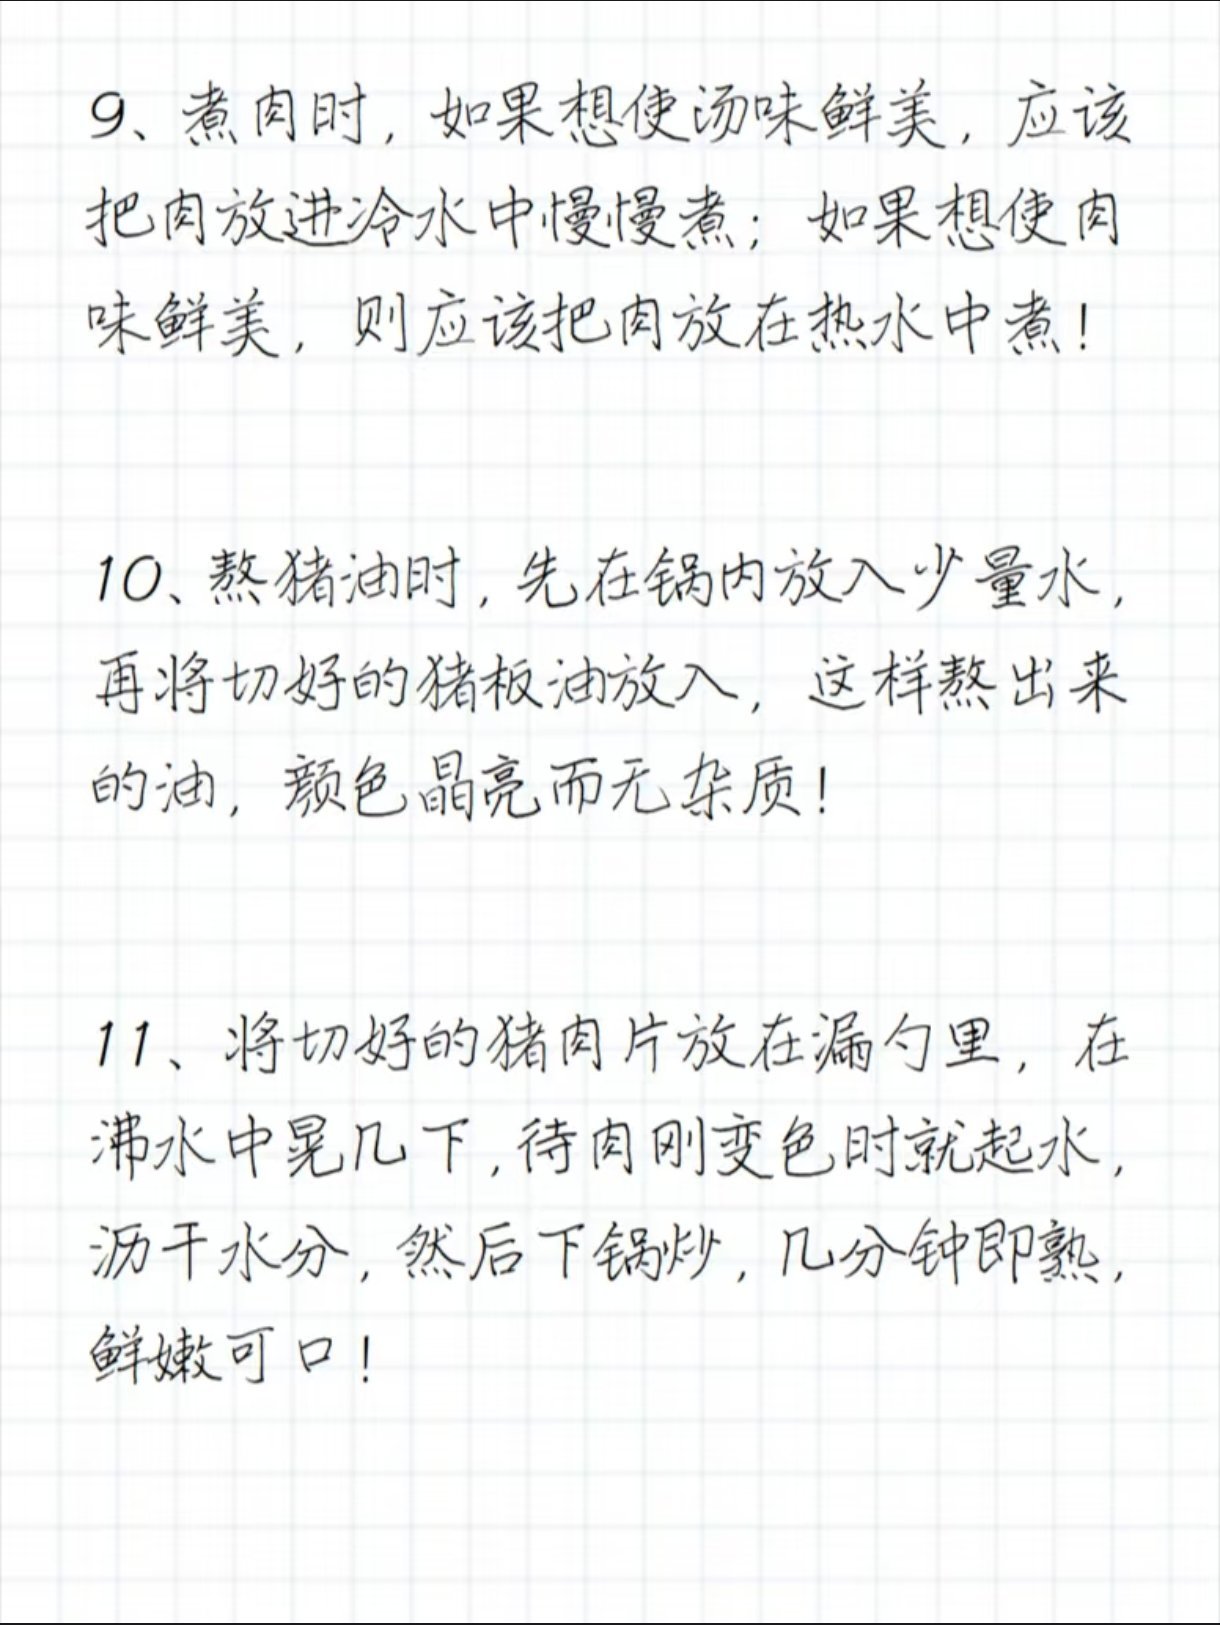 9、煮肉时，如果想使汤味鲜美，应该
把肉放进冷水中慢慢煮；如果想使肉
味鲜美，则应该把肉放在热水中煮！
10、熬猪油时，先在锅内放入少量水，
再将切好的猪板油放入，这样熬出来
的油，颜色晶亮而无杂质！
11、将切好的猪肉片放在漏勺里，在
沸水中晃几下，待肉刚变色时就起水，
沥干水分，然后下锅炒，几分钟即熟，
鲜嫩可口！